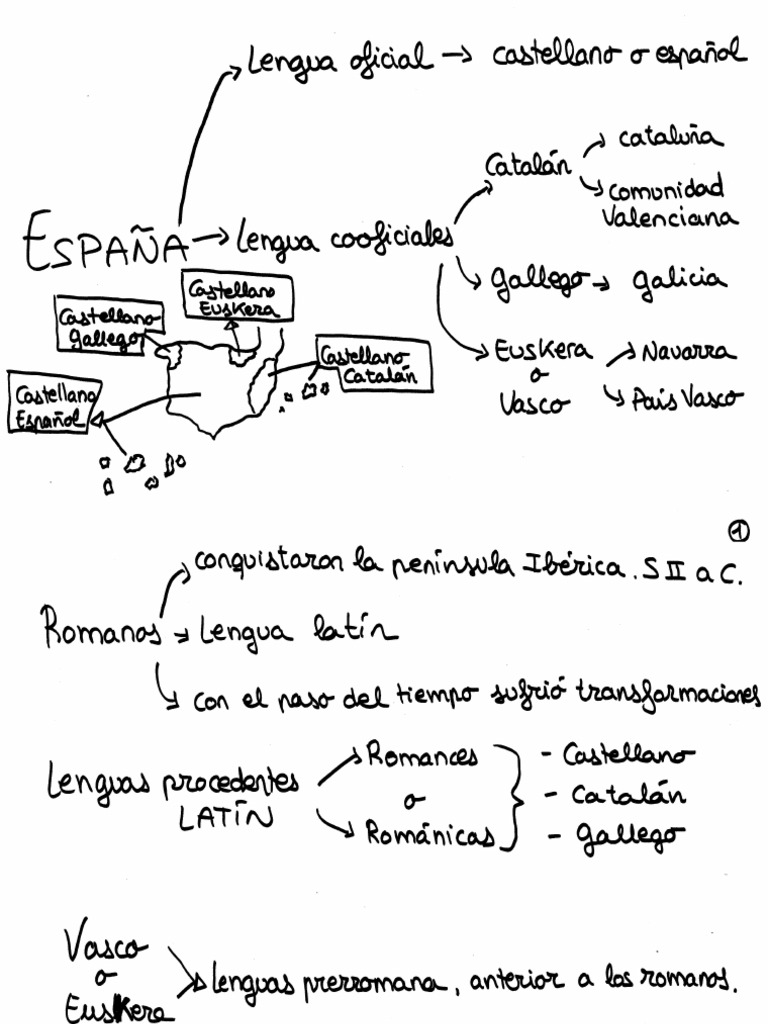 Lengua oficial → castellano o español
ESPAÑA → Lengua cooficiales
Catalán
cataluña
comunidad
Valenciana
gallego → galicia
Euskera
o
Vasco
Navarra
País Vasco
Castellano
Euskera
Castellano
gallego
Castellano
Catalán
Castellano
Español
1
Romanos
conquistaron la península Ibérica. S II a C.
Lengua latín
con el paso del tiempo sufrió transformaciones
Lenguas procedentes
LATÍN
Romances
o
Románicas
- Castellano
- Catalán
- gallego
Vasco
o
Euskera
lenguas prerromana, anterior a los romanos.